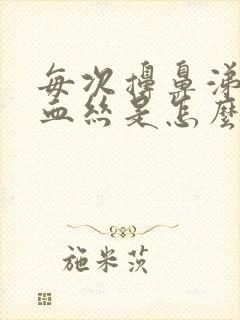 每次擤鼻涕
血丝是怎麼
施米茨